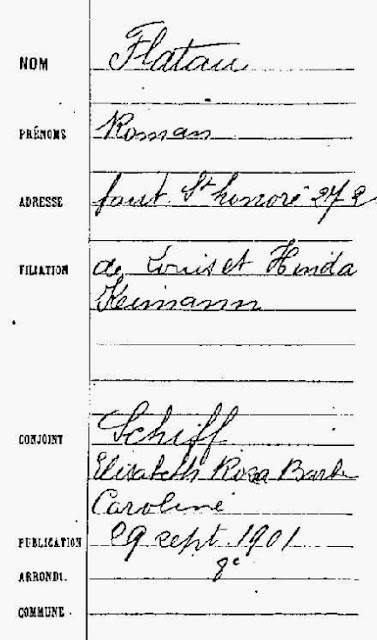 NOM Flatau
PRÉNOMS Roman
ADRESSE faub. St honoré 272
FILIATION de Louis et Hinda
Heimann
CONJOINT Schiff
Elisabeth Rosa Barb
Caroline
PUBLICATION 29 sept. 1901
ARRONDt. 8e
COMMUNE